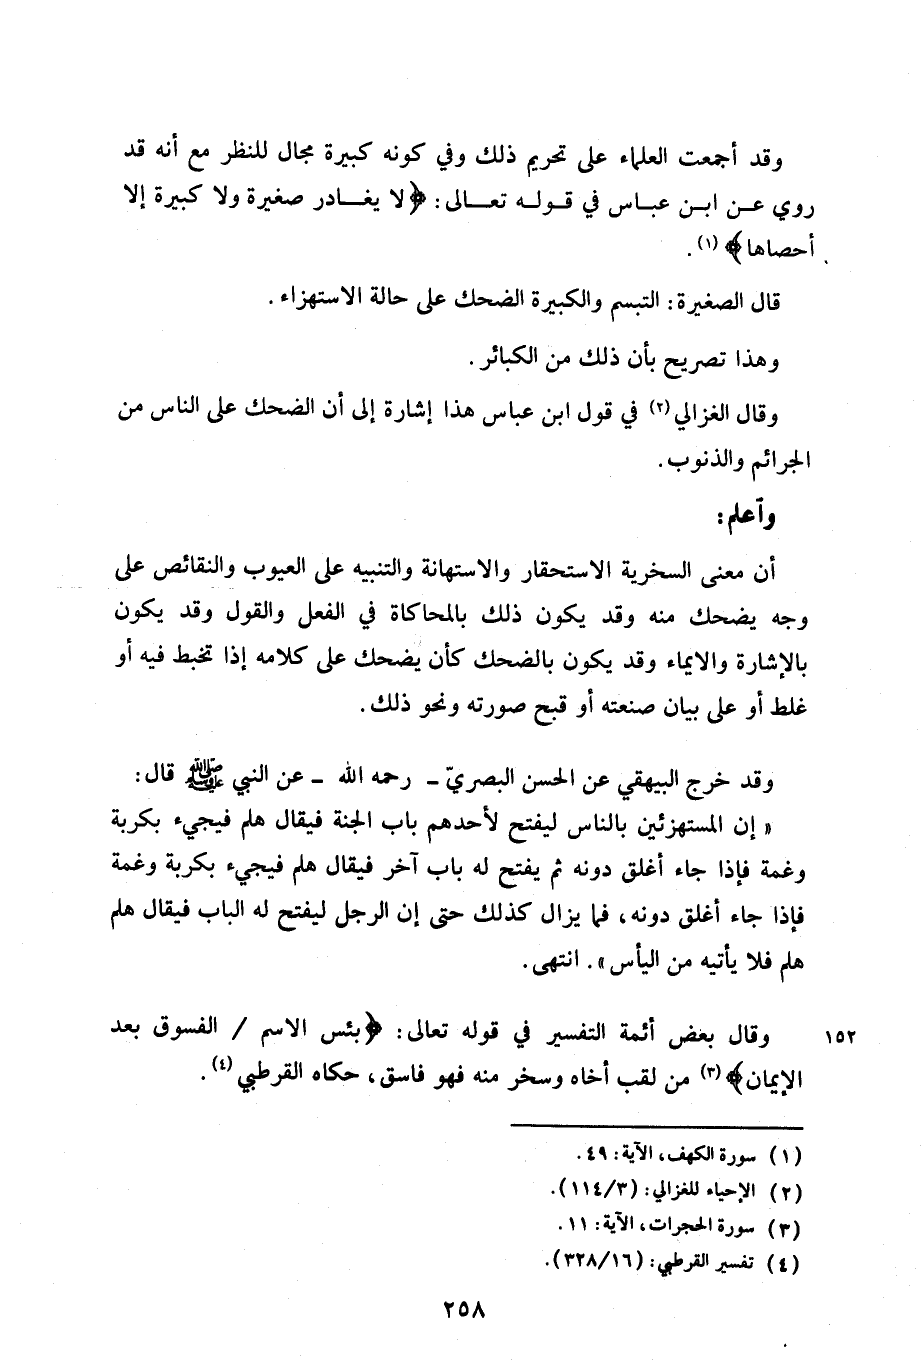 وقد أجمعت العلماء على تحريم ذلك وفي كونه كبيرة مجال للنظر مع أنه قد
روي عـن ابـن عبـاس في قـولـه تعـالى: ﴿لا يغـادر صغيرة ولا كبيرة إلا
أحصاها﴾ (١).
قال الصغيرة: التبسم والكبيرة الضحك على حالة الاستهزاء.
وهذا تصريح بأن ذلك من الكبائر.
وقال الغزالي (٢) في قول ابن عباس هذا إشارة إلى أن الضحك على الناس من
الجرائم والذنوب.
وآعلم:
أن معنى السخرية الاستحقار والاستهانة والتنبيه على العيوب والنقائص على
وجه يضحك منه وقد يكون ذلك بالمحاكاة في الفعل والقول وقد يكون
بالإشارة والايماء وقد يكون بالضحك كأن يضحك على كلامه إذا تخبط فيه أو
غلط أو على بيان صنعته أو قبح صورته ونحو ذلك.
وقد خرج البيهقي عن الحسن البصريّ ـ رحمه الله ـ عن النبي ﷺ قال:
« إن المستهزئين بالناس ليفتح لأحدهم باب الجنة فيقال هلم فيجيء بكربة
وغمة فإذا جاء أغلق دونه ثم يفتح له باب آخر فيقال هلم فيجيء بكربة وغمة
فإذا جاء أغلق دونه، فما يزال كذلك حتى إن الرجل ليفتح له الباب فيقال هلم
هلم فلا يأتيه من اليأس ». انتهى.
١٥٢ وقال بعض أئمة التفسير في قوله تعالى: ﴿بئس الاسم / الفسوق بعد
الإيمان﴾ (٣) من لقب أخاه وسخر منه فهو فاسق، حكاه القرطبي (٤).
(١) سورة الكهف، الآية: ٤٩.
(٢) الإحياء للغزالي: (١١٤/٣).
(٣) سورة الحجرات، الآية: ١١.
(٤) تفسير القرطبي: (٣٢٨/١٦).
٢٥٨